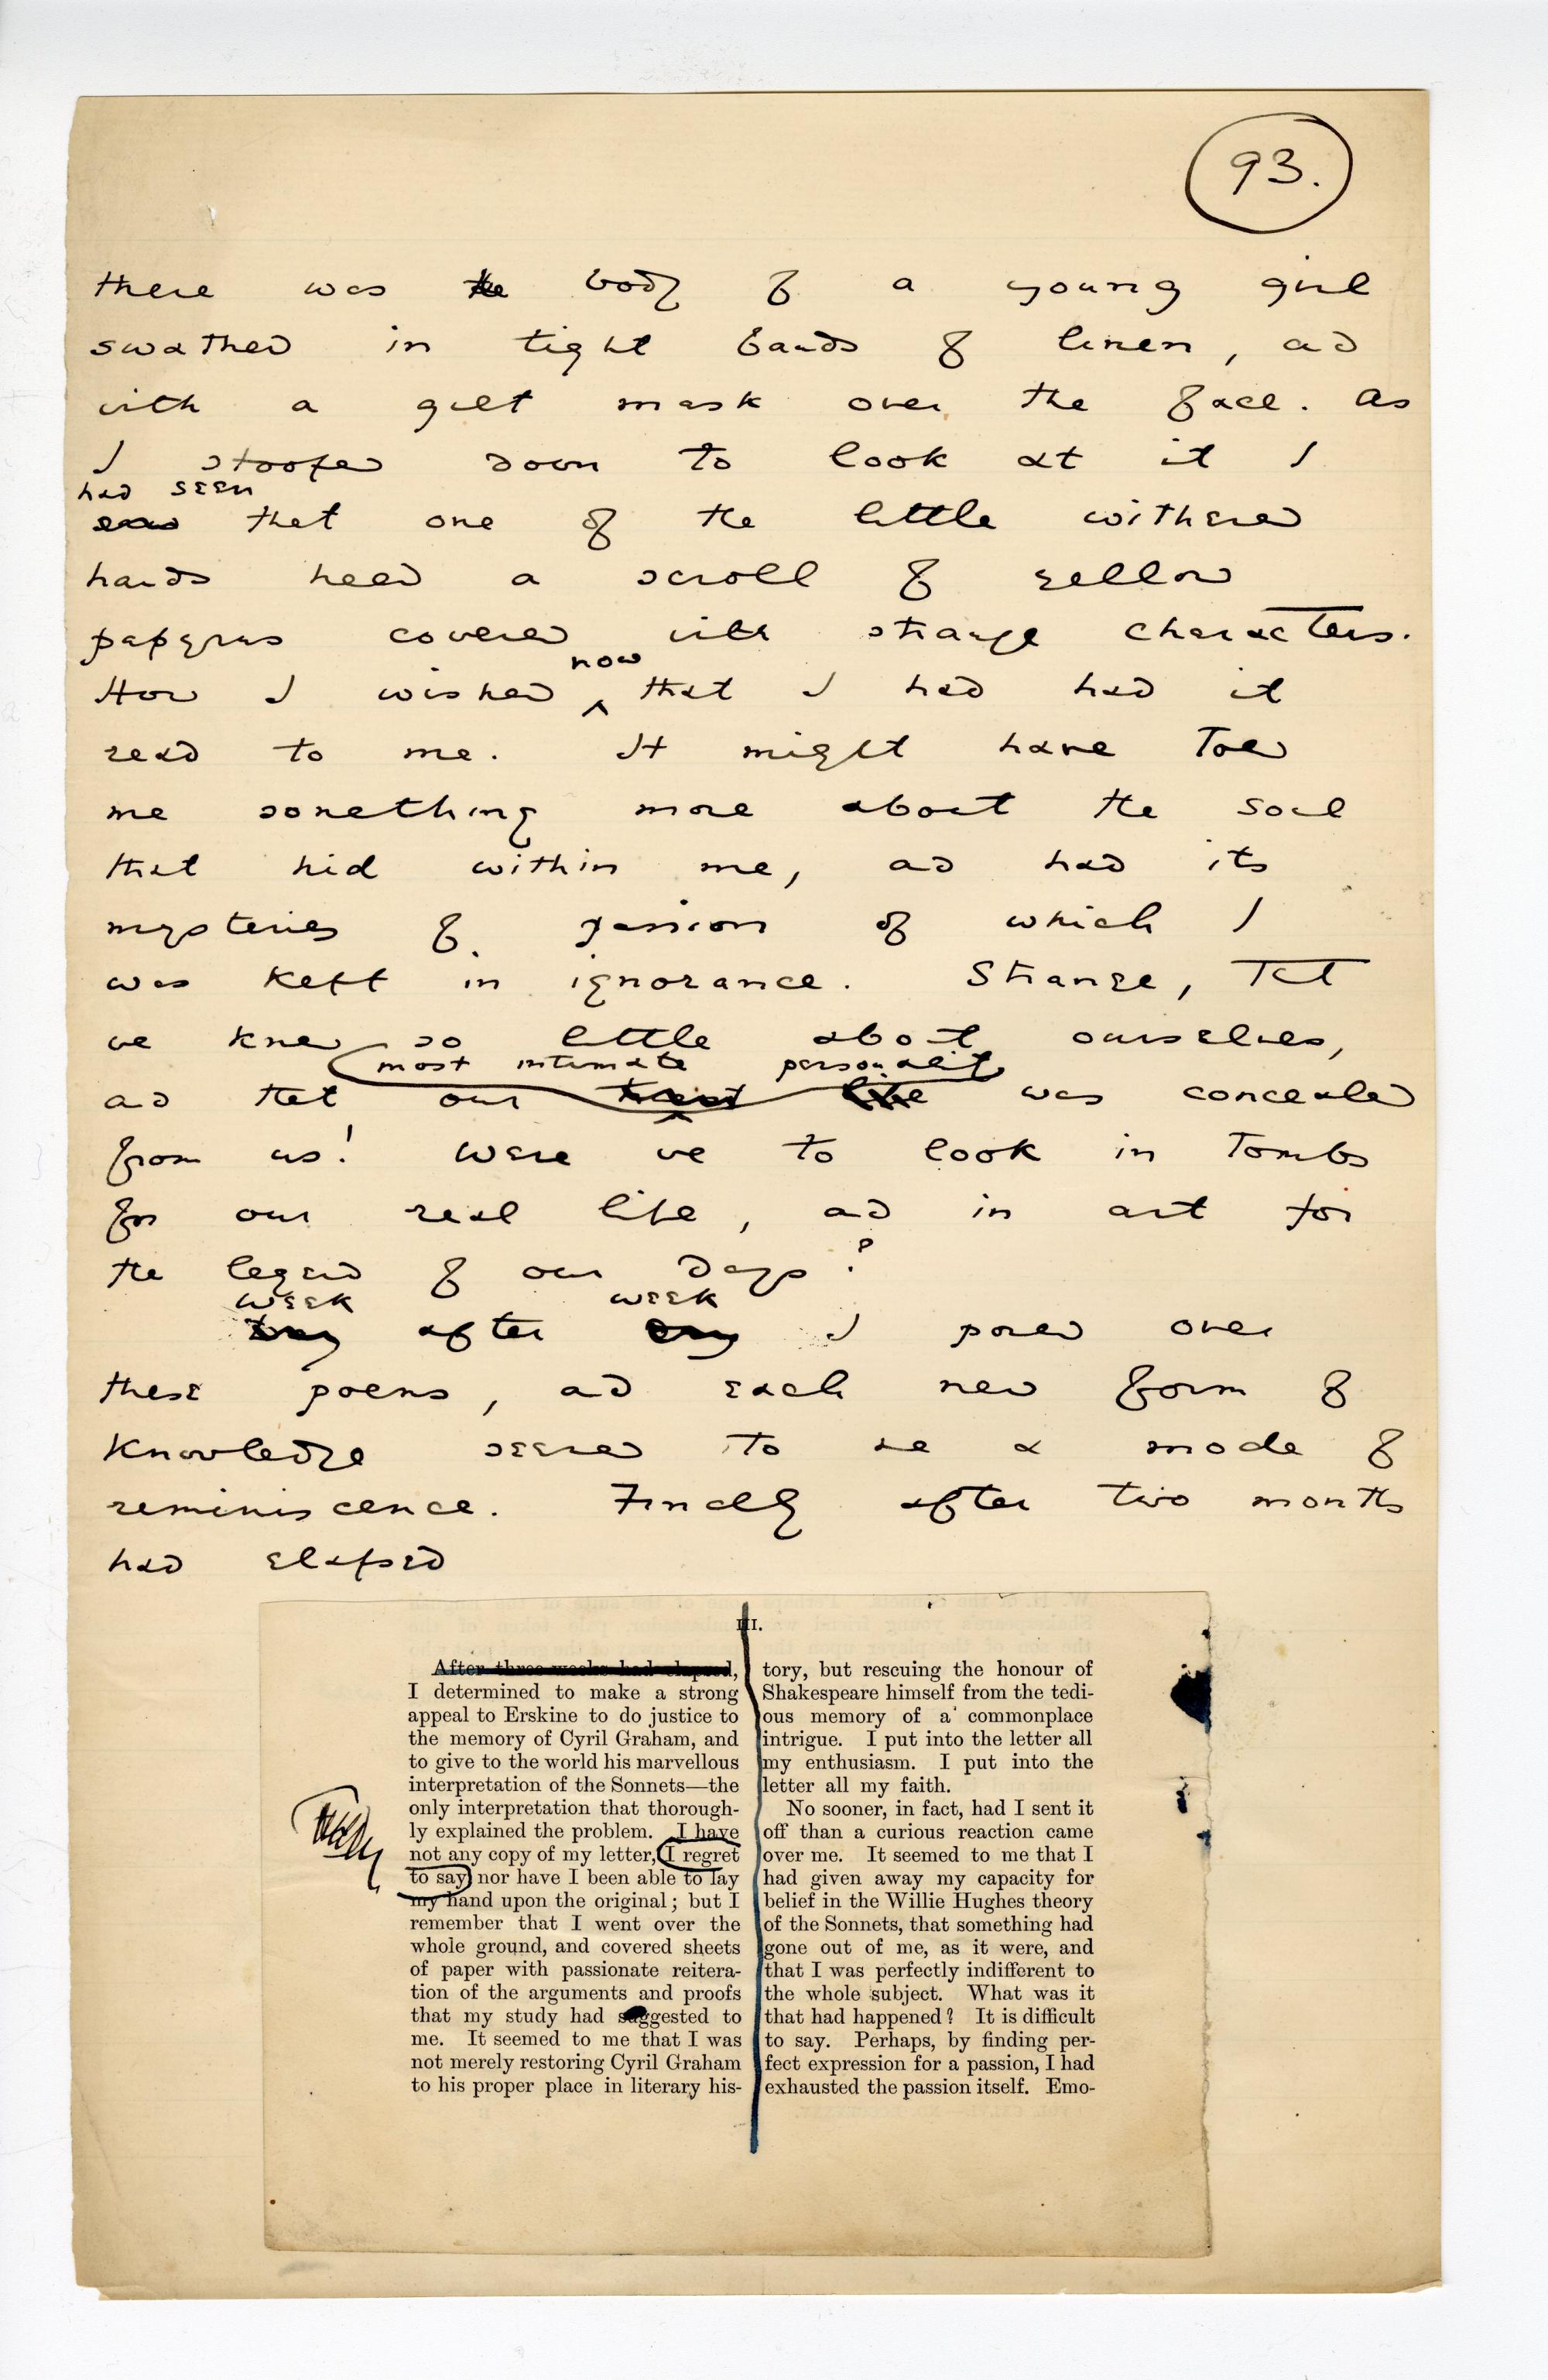 93.
there was the body of a young girl
swathed in tight bands of linen, ad
with a gilt mask over the face. As
I stooped down to look at it I
had seen
saw that one of the little withered
hands held a scroll of yellow
papyrus covered with strange characters.
now
How I wished ^ that I had had it
read to me. It might have told
me something more about the soul
that hid within me, ad had its
mysteries of passion of which I
was kept in ignorance. Strange, that
we knew so little about ourselves,
most intimate personality
ad that our life was concealed
from us! Were we to look in tombs
for our real life, ad in art for
the legend of our days?
week week
Day after Day I pored over
these poems, ad each new form of
knowledge seemed to me a mode of
reminiscence. Finally after two months
had elapsed
III.
After three weeks had elapsed,
I determined to make a strong
appeal to Erskine to do justice to
the memory of Cyril Graham, and
to give to the world his marvellous
interpretation of the Sonnets—the
only interpretation that thorough-
ly explained the problem. I have
not any copy of my letter, I regret
to say, nor have I been able to lay
my hand upon the original; but I
remember that I went over the
whole ground, and covered sheets
of paper with passionate reitera-
tion of the arguments and proofs
that my study had suggested to
me. It seemed to me that I was
not merely restoring Cyril Graham
to his proper place in literary his-
tory, but rescuing the honour of
Shakespeare himself from the tedi-
ous memory of a commonplace
intrigue. I put into the letter all
my enthusiasm. I put into the
letter all my faith.
No sooner, in fact, had I sent it
off than a curious reaction came
over me. It seemed to me that I
had given away my capacity for
belief in the Willie Hughes theory
of the Sonnets, that something had
gone out of me, as it were, and
that I was perfectly indifferent to
the whole subject. What was it
that had happened? It is difficult
to say. Perhaps, by finding per-
fect expression for a passion, I had
exhausted the passion itself. Emo-